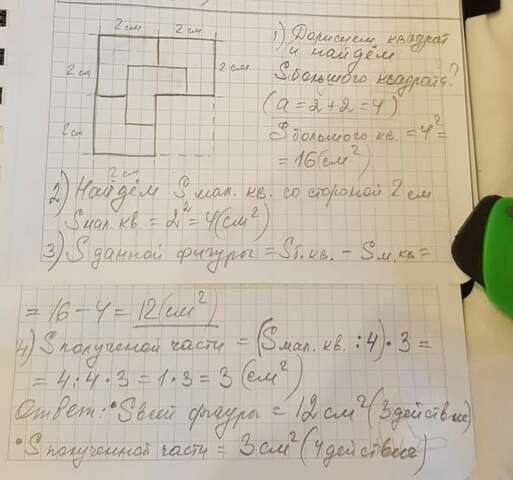 2 см 2 см
2 см
2 см
2 см
2 см
1) Дорисуем квадрат
и найдём
S большого квадрата?
(a = 2 + 2 = 4)
S большого кв. = 4² =
= 16 (см²)
2) Найдём S мал. кв. со стороной 2 см
S мал. кв = 2² = 4 (см²)
3) S данной фигуры = S б. кв. – S м. кв =
= 16 – 4 = 12 (см²)
4) S полученой части = (S мал. кв. : 4) · 3 =
= 4 : 4 · 3 = 1 · 3 = 3 (см²)
Ответ: • S всей фигуры = 12 см² (3 действие)
• S полученной части = 3 см² (4 действие)